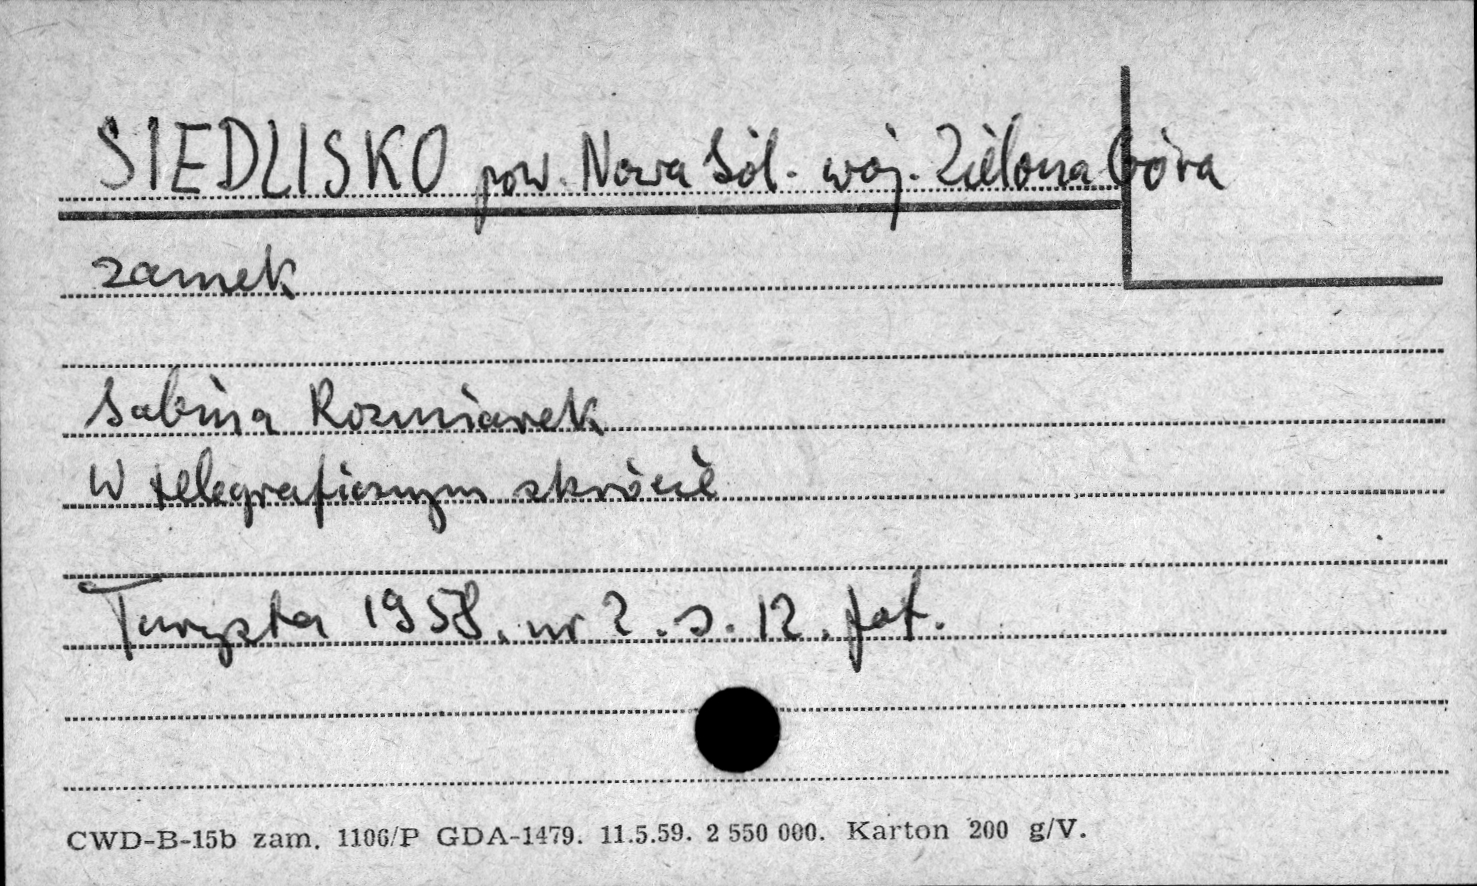 SIEDLISKO pow. Nowa Sól. woj. Zielona Góra
zamek
Sabina Rozmiarek
W telegraficznym skrócie
Turysta 1958. nr 2. s. 12. fot.
CWD-B-15b zam. 1106/P GDA-1479. 11.5.59. 2 550 000. Karton 200 g/V.